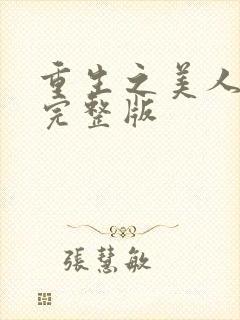 重生之美人
完整版
張慧敏